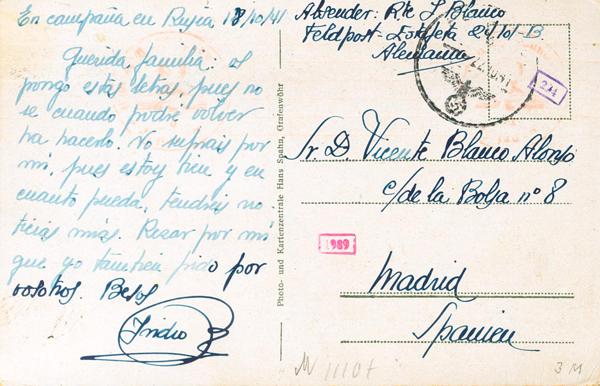 En campaña en Rusia 18/10/41
Querida familia: os
pongo estas letras, pues no
se cuando podré volver
ha hacerlo. No sufrais por
mi, pues estoy bien y en
cuanto pueda, tendreis no
ticias mias. Rezar por mi
que yo tambien pido por
vosotros. Besos
Isidro
Absender: J. Blanco
Feldpost-Estafeta
Alemania
22.10.41
244
Sr. D. Vicente Blanco Alonso
c/ de la Bolsa nº 8
1989
Madrid
Spanien
Photo- und Kartenzentrale Hans Spahn, Grafenwöhr
3 M